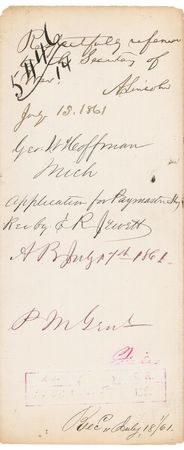 Respectfully referred
to the Secretary of
War
A. Lincoln
July 13. 1861
5446
14
Geo. W Hoffman
Mich
Application for Paymastership
Rec by E R Jewett
A P July 17th 1861.
P M Genl
File
Rec July 18/61.